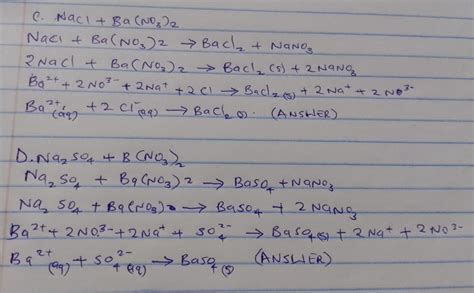 C. NaCl + Ba(NO3)2
NaCl + Ba(NO3)2 → BaCl2 + NaNO3
2NaCl + Ba(NO3)2 → BaCl2(s) + 2NaNO3
Ba2+ + 2NO3- + 2Na+ + 2Cl → BaCl2(s) + 2Na+ + 2NO3-
Ba2+(aq) + 2Cl-(aq) → BaCl2(s). (ANSWER)
D. Na2SO4 + B(NO3)2
Na2SO4 + Ba(NO3)2 → BaSO4 + NaNO3
Na2SO4 + Ba(NO3)2 → BaSO4 + 2NaNO3
Ba2+ + 2NO3- + 2Na+ + SO4 2- → BaSO4(s) + 2Na+ + 2NO3-
Ba2+(aq) + SO4 2-(aq) → BaSO4(s) (ANSWER)